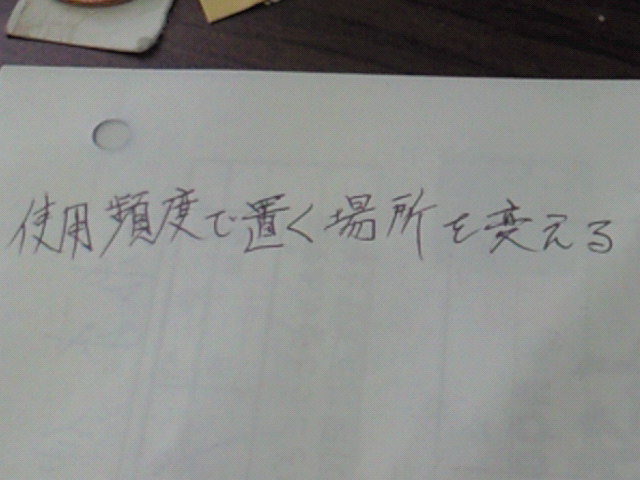 使用頻度で置く場所を変える